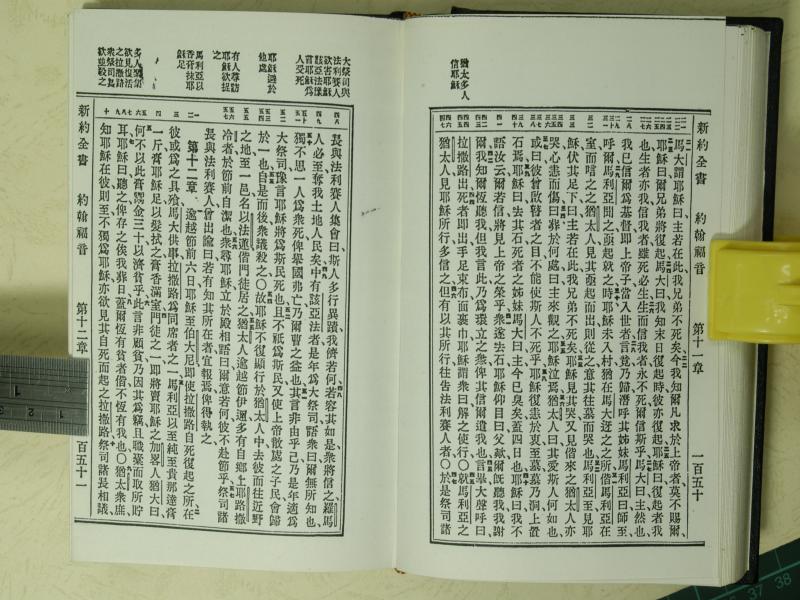 新約全書 約翰福音 第十一章 一百五十
馬大謂耶穌曰主若在此我兄弟不死矣今我知爾凡求於上帝者莫不賜爾
耶穌曰爾兄弟將復起馬大曰我知末日復起時彼亦復起耶穌曰復起者我
也生者亦我信我者雖死必生生而信我者永不死爾信斯乎馬大曰主然也
我已信爾爲基督即上帝子當入世者言竟乃歸潛呼其姊妹馬利亞曰師至
呼爾馬利亞聞之亟起就之時耶穌未入村猶在馬大迓之之所偕馬利亞在
室而唁之之猶太人見其亟起而出則從之意其往墓而哭也馬利亞至見耶
穌伏其足下曰主若在此我兄弟不死矣耶穌見其哭又見偕來之猶太人亦
哭心恚而傷曰葬於何處曰主來觀之耶穌泣焉猶太人曰其愛斯人何如也
或曰彼曾啟瞽者之目不能使斯人不死乎耶穌復恚於衷至墓墓乃洞上置
石焉耶穌曰去其石死者之姊妹馬大曰主今已臭矣蓋四日也耶穌曰我不
語汝云爾若信將見上帝之榮乎衆遂去石耶穌仰目曰父歟爾旣聽我我謝
爾我知爾恆聽我但我言此乃爲環立之衆俾其信爾遣我也言畢大聲呼曰
拉撒路出死者即出手足束布面裹巾耶穌謂衆曰解之使行○就馬利亞之
猶太人見耶穌所行多信之但有以其所行往告法利賽人者○於是祭司諸
猶太多人
信耶穌
長與法利賽人集會曰斯人多行異蹟我儕若何若容其如是衆將信之羅馬
人必至奪我土地人民矣中有該亞法者是年爲大祭司語衆曰爾無所知也
獨不思一人爲衆死俾舉國弗亡乃爾曹之益也其言非由乎己乃是年適爲
大祭司豫言耶穌將爲斯民死也且不祇爲斯民又使上帝散處之子民會歸
於一也自是而後衆議殺之○故耶穌不復顯行於猶太人中去彼而往近野
之地至一邑名以法蓮偕門徒居之猶太人逾越節伊邇多有自鄉上耶路撒
冷者於節前自潔也衆尋耶穌立於殿相語曰爾意若何彼不赴節乎祭司諸
長與法利賽人曾出諭曰若有知其所在者宜報焉俾得執之
第十二章 逾越節前六日耶穌至伯大尼即使拉撒路自死復起之所在
彼或爲之具飱馬大供事拉撒路爲同席者之一馬利亞以至純至貴那達膏
一斤膏耶穌足以髮拭之膏香滿室門徒之一即將賣耶穌之加畧人猶大曰
何不以此膏鬻金三十以濟貧乎此言非顧貧乃因其爲竊且職橐而取所貯
耳耶穌曰聽之俾存之俟我葬日蓋爾恆有貧者偕不恆有我也○猶太衆庶
知耶穌在彼則至不獨爲耶穌亦欲見其自死而起之拉撒路祭司諸長相議
大祭司與
法利賽人
欲害耶穌
該亞法豫
言耶穌爲
人受死
耶穌避於
他處
有人尋訪
耶穌欲捉
之
馬利亞以
香膏抹耶
穌足
多人猶集
欲見復活
之拉撒路
衆祭司長
欲並殺之
新約全書 約翰福音 第十二章 一百五十一